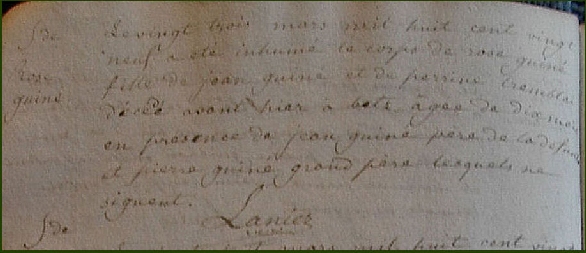 S. de
Rose
quiné
Le vingt trois mars mil huit cent vingt
neuf a été inhumé le corps de rose quiné
fille de jean quiné et de perrine trembla
décédé avant hier à age de dix mois
en présence de jean quiné père de la defun
et pierre quiné grand père lesquels ne
signent.
Lanier
S. de
vingt mars mil huit cent vingt